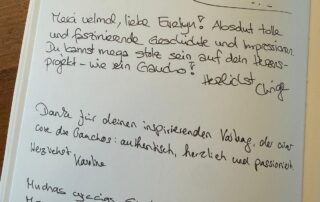 Merci velmol, liebe Evelyn! Absolut tolle
und faszinierende Geschichte und Impressionen.
Du kannst mega stolz sein auf dein Herzens-
projekt – wie ein Gaucho!
Herzlichst
Danke für deinen inspirierenden Vortrag, der war
wie die Gauchos: authentisch, herzlich und passioniert.
Herzlichst
Karine